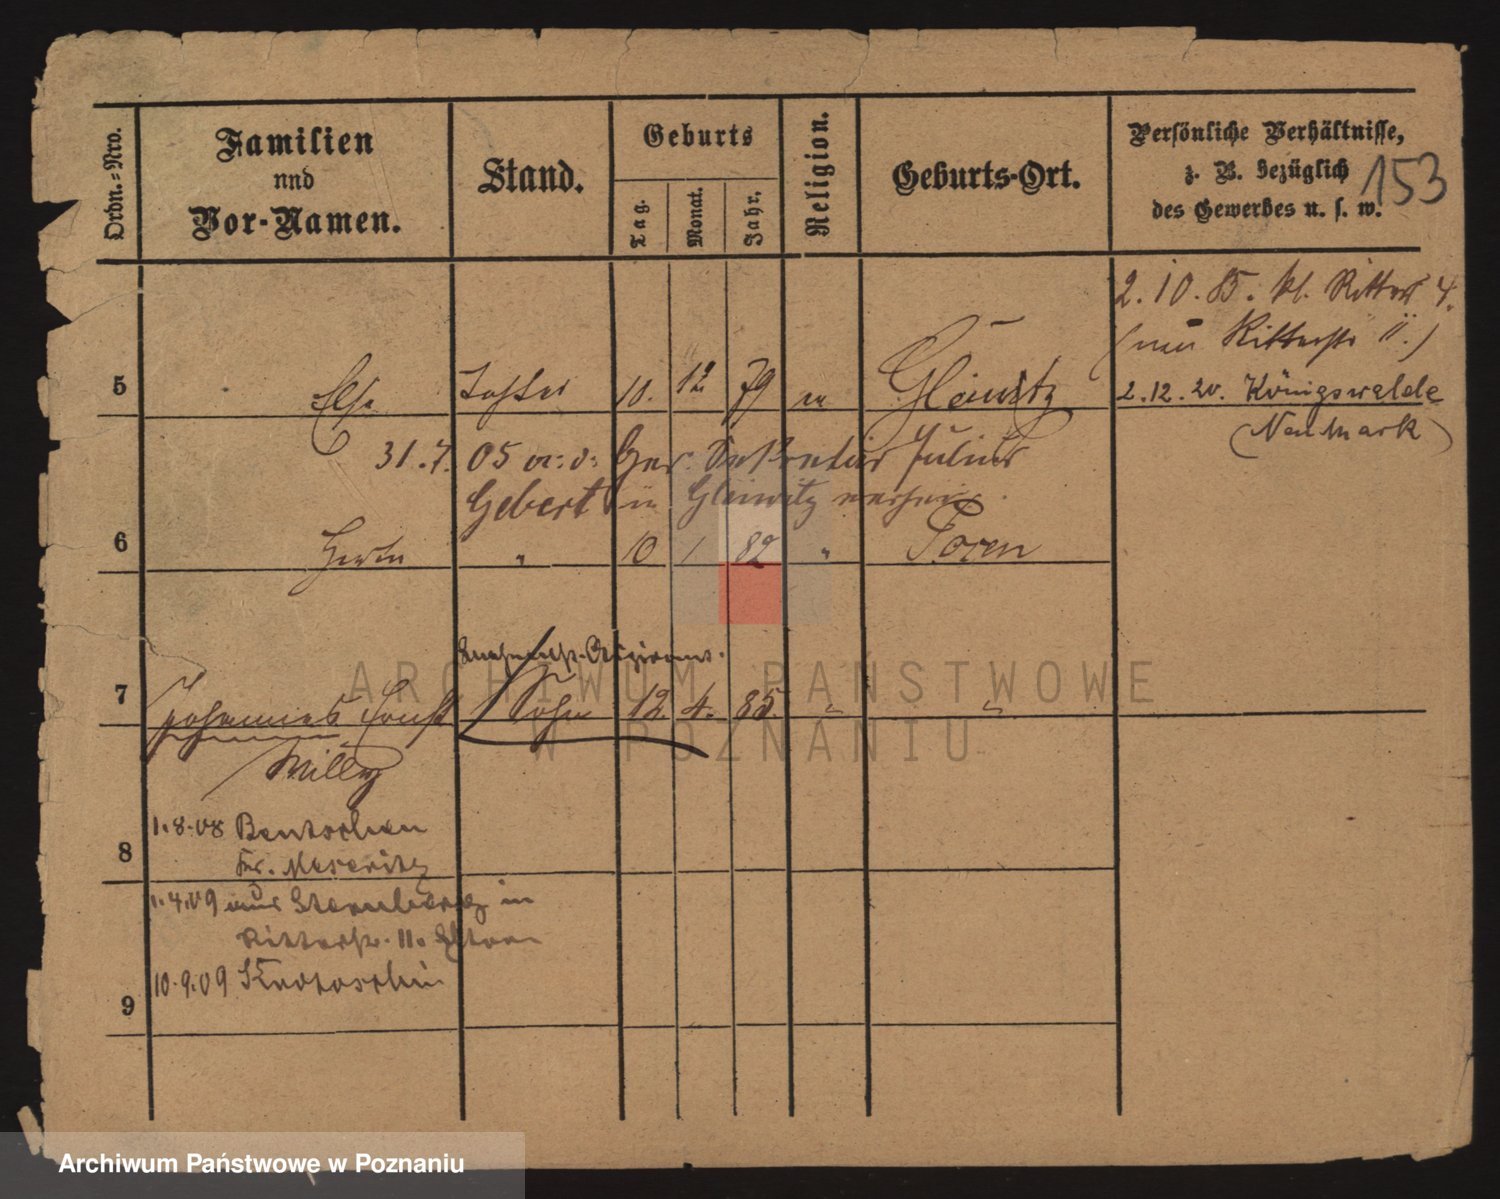 Ordn.-Nro.
Familien
und
Vor-Namen.
Stand.
Geburts
Tag.
Monat.
Jahr.
Religion.
Geburts-Ort.
Persönliche Verhältnisse,
z. B. bezüglich
des Gewerbes u. s. w.
153
2.10.85. kl. Ritter 4.
(nun Ritterstr 11.)
5 Else Tochter 10. 12 79 ev Gleiwitz
2.12.20. Königswalde
(Neumark)
31.7. 05 Ger. Sekretär Julius
Gebert in Gleiwitz verheir.
6 Herta " 10 1 82 " Posen
7 Johannes Ernst Sohn 12. 4. 85. " "
Willy
1.8.08 Bentschen
8 Kr. Meseritz
1.4.09 aus Sternberg in
Ritterstr. 11.
10.9.09 Krotoschin
9
ARCHIWUM PAŃSTWOWE
W POZNANIU
Archiwum Państwowe w Poznaniu